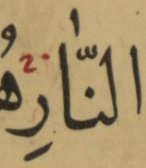 النَّارِ ۲۰